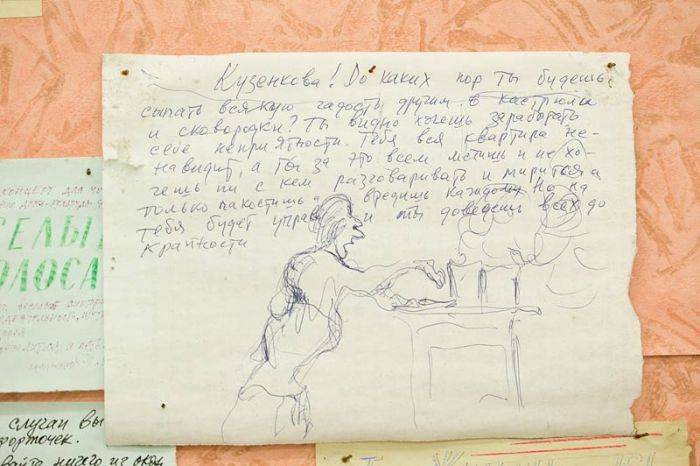 Кузенкова! До каких пор ты будешь
сыпать всякую гадость другим в кастрюли
и сковородки? Ты видно хочешь заработать
себе неприятности. Тебя вся квартира не-
навидит, а ты за это всем мстишь и не хо-
чешь ни с кем разговаривать и мириться а
только пакостишь и вредишь каждому Но на
тебя будет управа и ты доведешь всех до
крайности
КОНЦЕРТ ДЛЯ
СЕЛЫ
ОЛОСА
случаи вы
форточек.
вайте ничего из окон